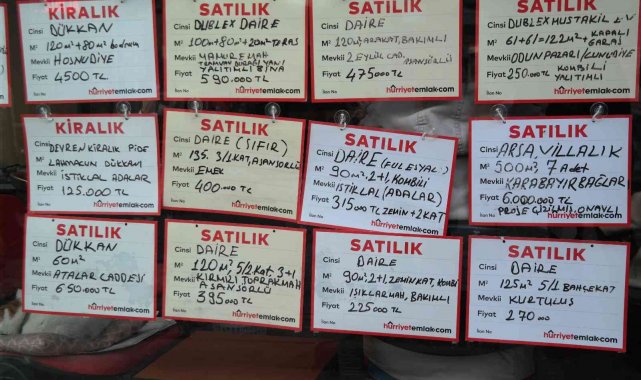 KİRALIK
Cinsi DÜKKAN
M² 120m²+80m² bodrum
Mevkii HOSNUDİYE
Fiyat 4500 TL
hürriyetemlak.com
SATILIK
Cinsi DUBLEX DAİRE
M² 100m²+80m²+20m² TERAS
Mevkii MAMUREMAH
YALITIMLI BİNA
Fiyat 590.000 TL
hürriyetemlak.com
SATILIK
Cinsi DAİRE
M² 120m², ARAKAT, BAKIMLI
Mevkii 2 EYLÜL CAD. ASANSÖRLÜ
Fiyat 475000 TL
hürriyetemlak.com
SATILIK
Cinsi DUBLEX MUSTAKİL EV
M² 61+61=122m²+ KAPALI GARAJ
Mevkii ODUNPAZARI/
Fiyat 250.000 TL KOMBİLİ YALITIMLI
hürriyetemlak.com
KİRALIK
Cinsi DEVREN KİRALIK PİDE
M² LAHMACUN DÜKKANI
Mevkii İSTİKLAL ADALAR
Fiyat 125.000 TL
İlan No
hürriyetemlak.com
SATILIK
Cinsi DAİRE (SIFIR)
M² 135. 3/1 KAT, ASANSÖRLÜ
Mevkii EMEK
Fiyat 400.000 TL
İlan No
hürriyetemlak.com
SATILIK
Cinsi DAİRE (FULEŞYALI)
M² 90m², 2+1, KOMBİLİ
Mevkii İSTİKLAL (ADALAR)
Fiyat 315000 TL ZEMİN+2 KAT
İlan No
hürriyetemlak.com
SATILIK
Cinsi ARSA, VİLLALIK
M² 500m², 7 Adet
Mevkii KARABAYIR BAĞLAR
Fiyat 6.000.000 TL
PROJE ÇİZİLMİŞ, ONAYLI
İlan No
hürriyetemlak.com
SATILIK
Cinsi DÜKKAN
M² 60m²
Mevkii ATALAR CADDESİ
Fiyat 650.000 TL
İlan No
hürriyetemlak.com
SATILIK
Cinsi DAİRE
M² 120m², 5/2 Kat 3+1
Mevkii KIRMIZI TOPRAK MAH
ASANSÖRLÜ
Fiyat 395000 TL
İlan No
hürriyetemlak.com
SATILIK
Cinsi DAİRE
M² 90m², 2+1, ZEMİN KAT, KOMBİ
Mevkii IŞIKLAR MAH, BAKIMLI
Fiyat 225000 TL
İlan No
hürriyetemlak.com
SATILIK
Cinsi DAİRE
M² 125m² 5/1 BAHÇEKAT
Mevkii KURTULUŞ
Fiyat 270.000
İlan No
hürriyetemlak.com